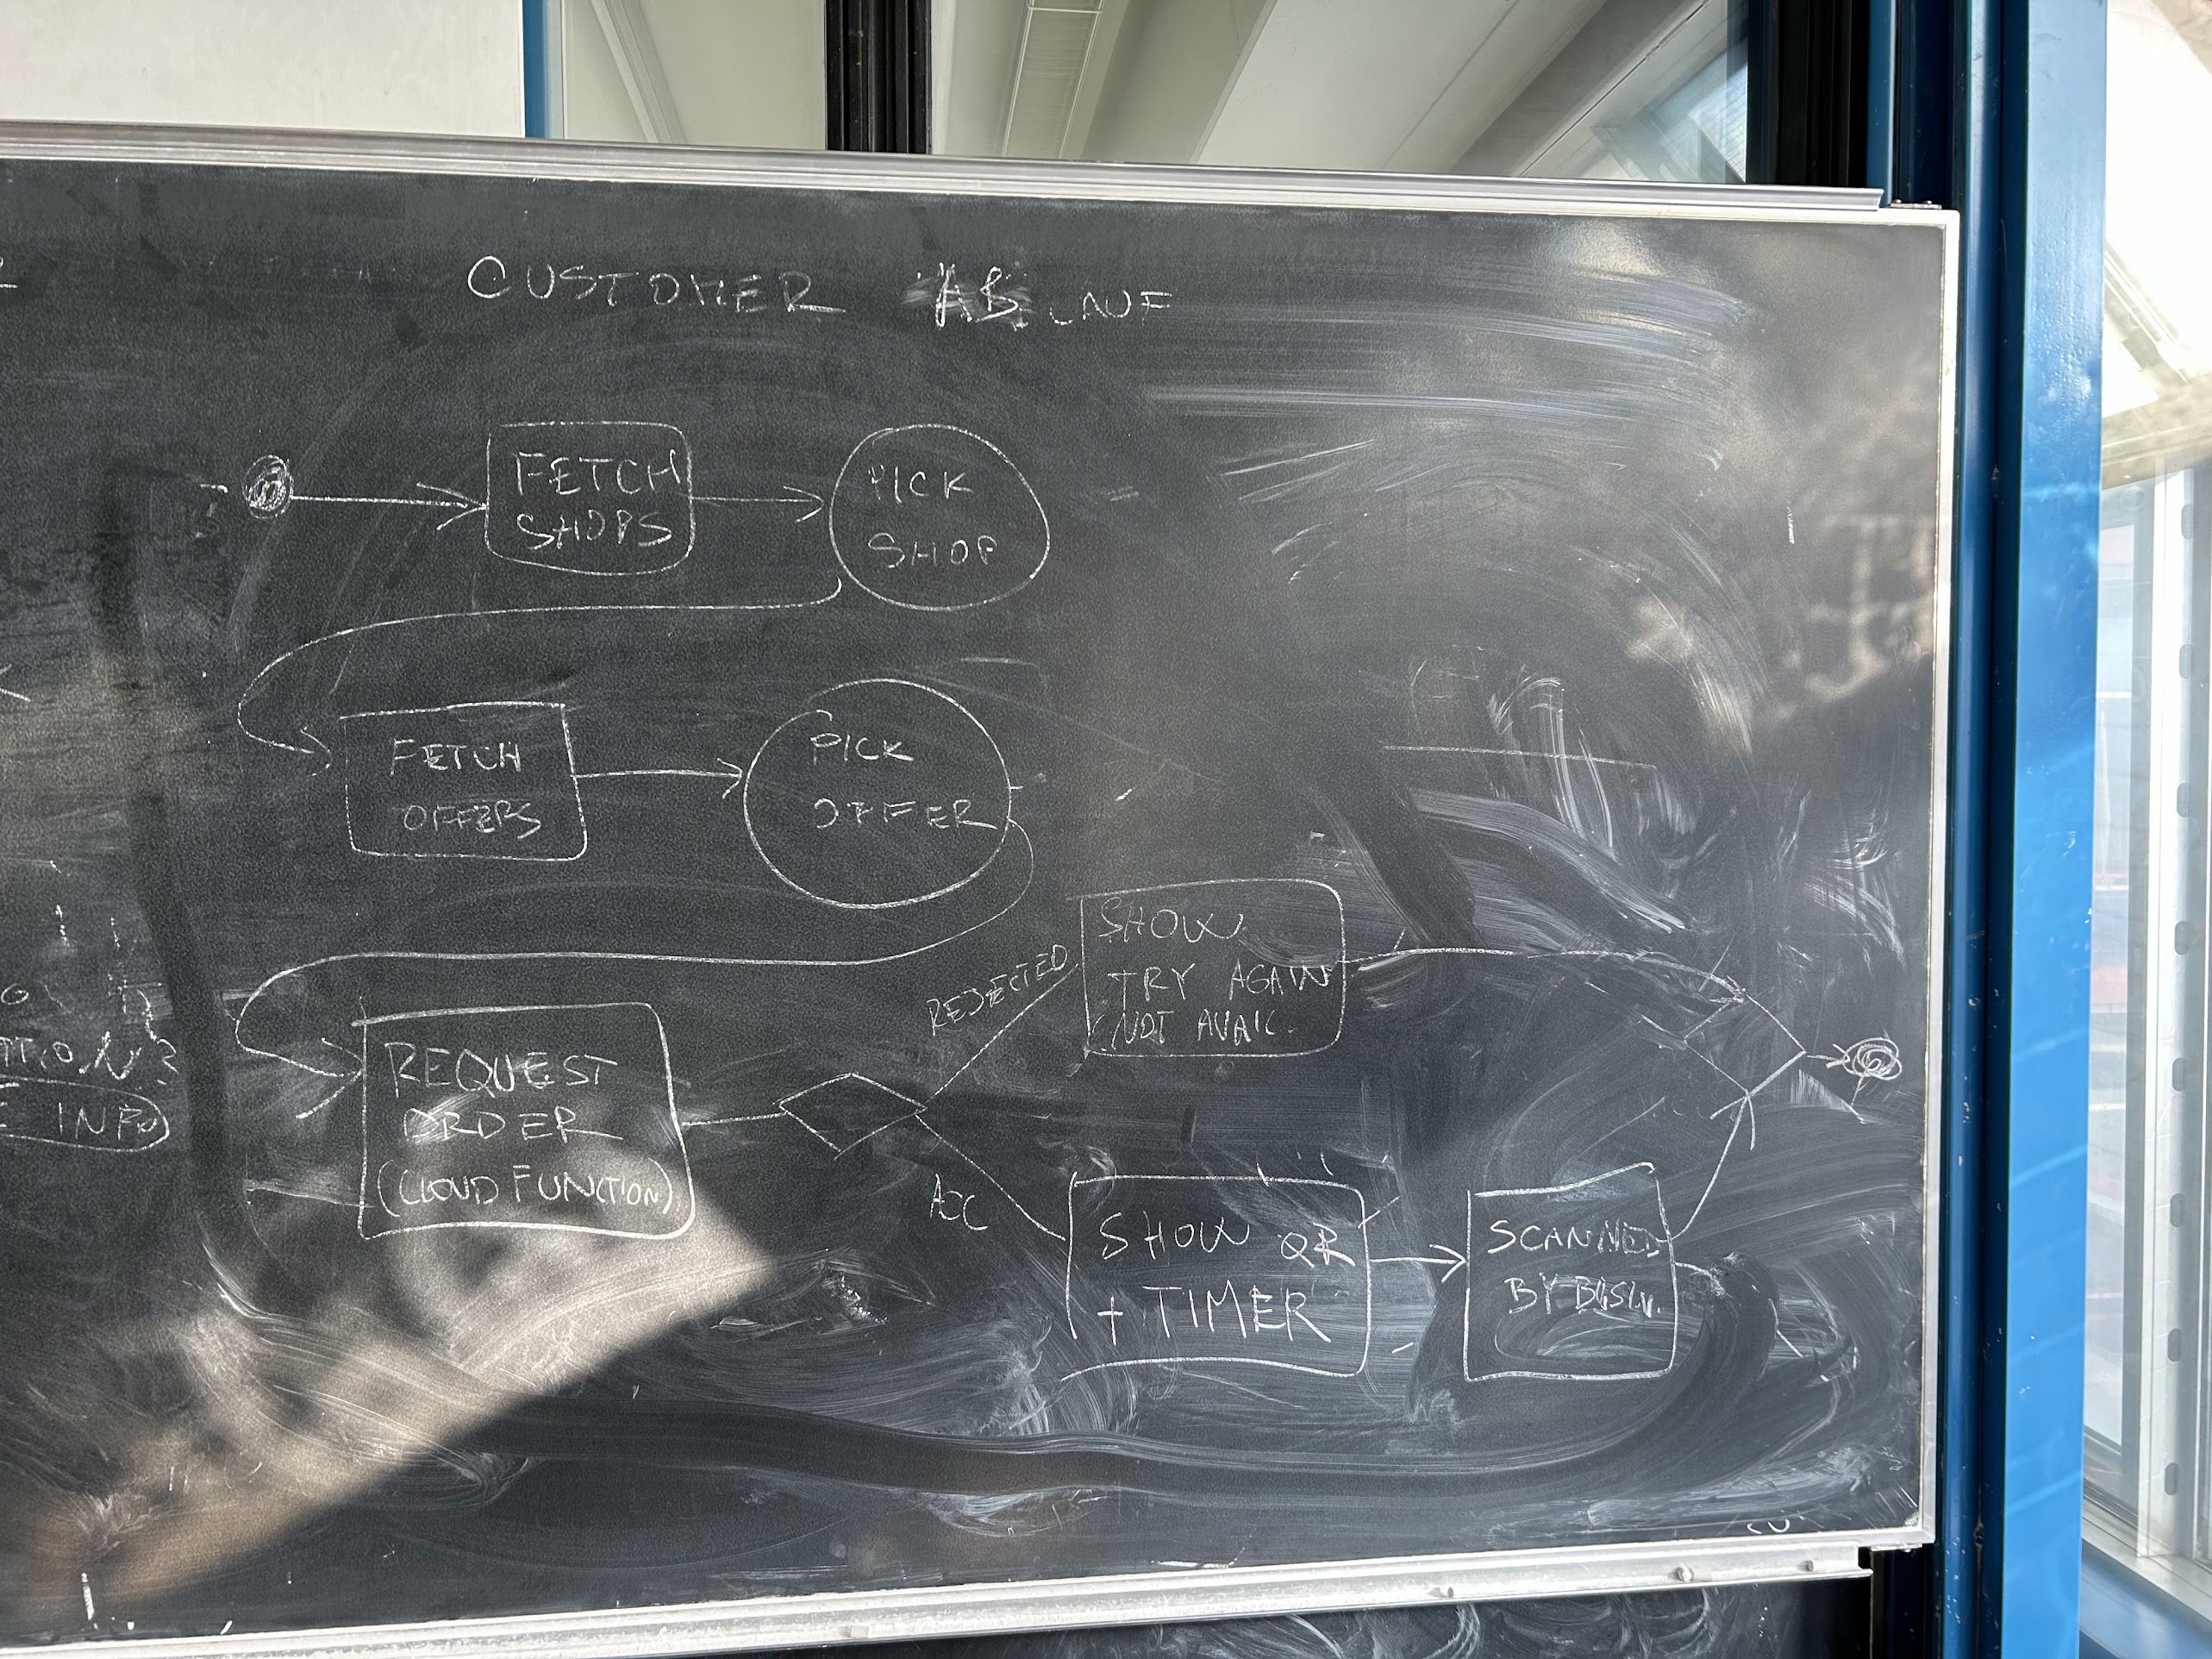 CUSTOMER ABLAUF
FETCH
SHOPS
PICK
SHOP
FETCH
OFFERS
PICK
OFFER
REQUEST
ORDER
(CLOUD FUNCTION)
REJECTED
SHOW
TRY AGAIN
NOT AVAIL.
ACC
SHOW QR
+ TIMER
SCANNED
BY BUSN.
INFO